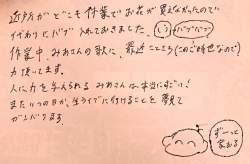 近所がどこも休業でお花が買えなかったので
代わりにバブ入れておきました。いい バブだブ
作業中、みおさんの歌に、最近こころ(このご時世なので)
力使ってます。
人に力を与えられるみおさんは本当にすごい!
またいつの日か、生ライブに行けることを夢見て
がんばります
ずーっと
家おる